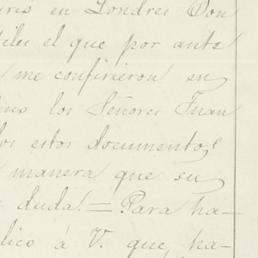 en Londres Don
el que por ante
me confirieron su
los Señores Juan
los estos documentos
manera que su
duda! = Para ha-
á V. que, ha-